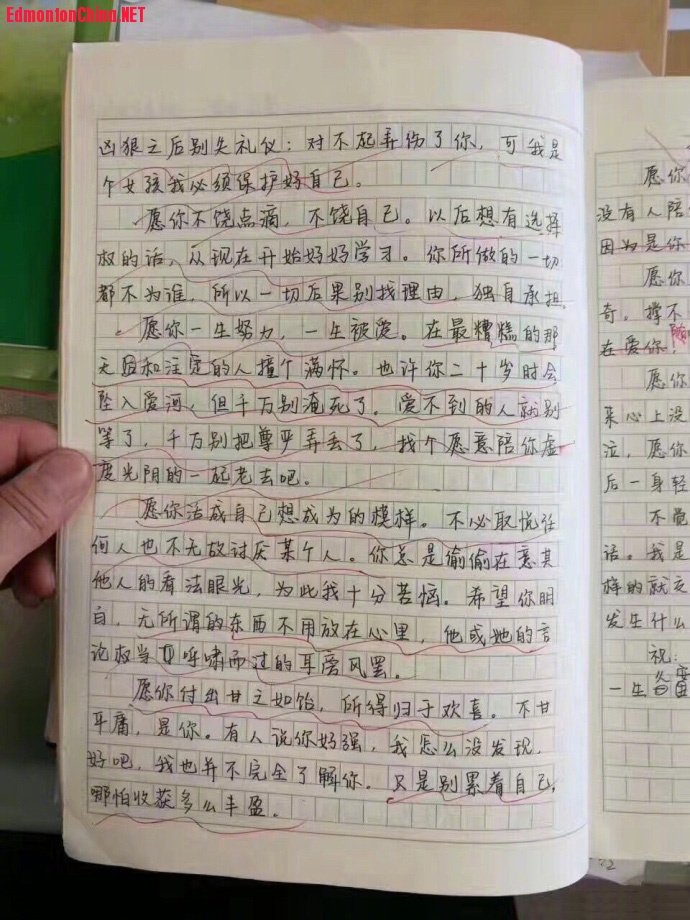 EdmontonChina.NET
凶狠之后别失礼仪：对不起弄伤了你，可我是
个女孩我必须保护好自己。
愿你不饶点痛，不饶自己。以后想有选择
权的话，从现在开始好好学习。你所做的一切
都不为谁，所以一切后果别找理由，独自承担。
愿你一生努力，一生被爱。在最糟糕的那
天因和注定的人撞个满怀。也许你二十岁时会
坠入爱河，但千万别淹死了，爱不到的人就别
等了，千万别把尊严弄丢了，找个愿意陪你虚
度光阴的一起老去吧。
愿你活成自己想成为的模样。不必取悦任
何人也不无故讨厌某个人。你总是偷偷在意其
他人的看法眼光，为此我十分苦恼。希望你明
白，无所谓的东西不用放在心里，他或她的言
论权当呼啸而过的耳旁风罢。
愿你付出甘之如饴，所得归于欢喜。不甘
平庸，是你。有人说你好强，我怎么没发现，
好吧，我也并不完全了解你。只是别累着自己，
哪怕收获多么丰盈。
愿你
没有人陪
因为是你
愿你
奇，撑不
在爱你！
愿你
来心上没
泣，愿你
后一身轻
不觉
话。我是
样的就交
发生什么
祝：
一生